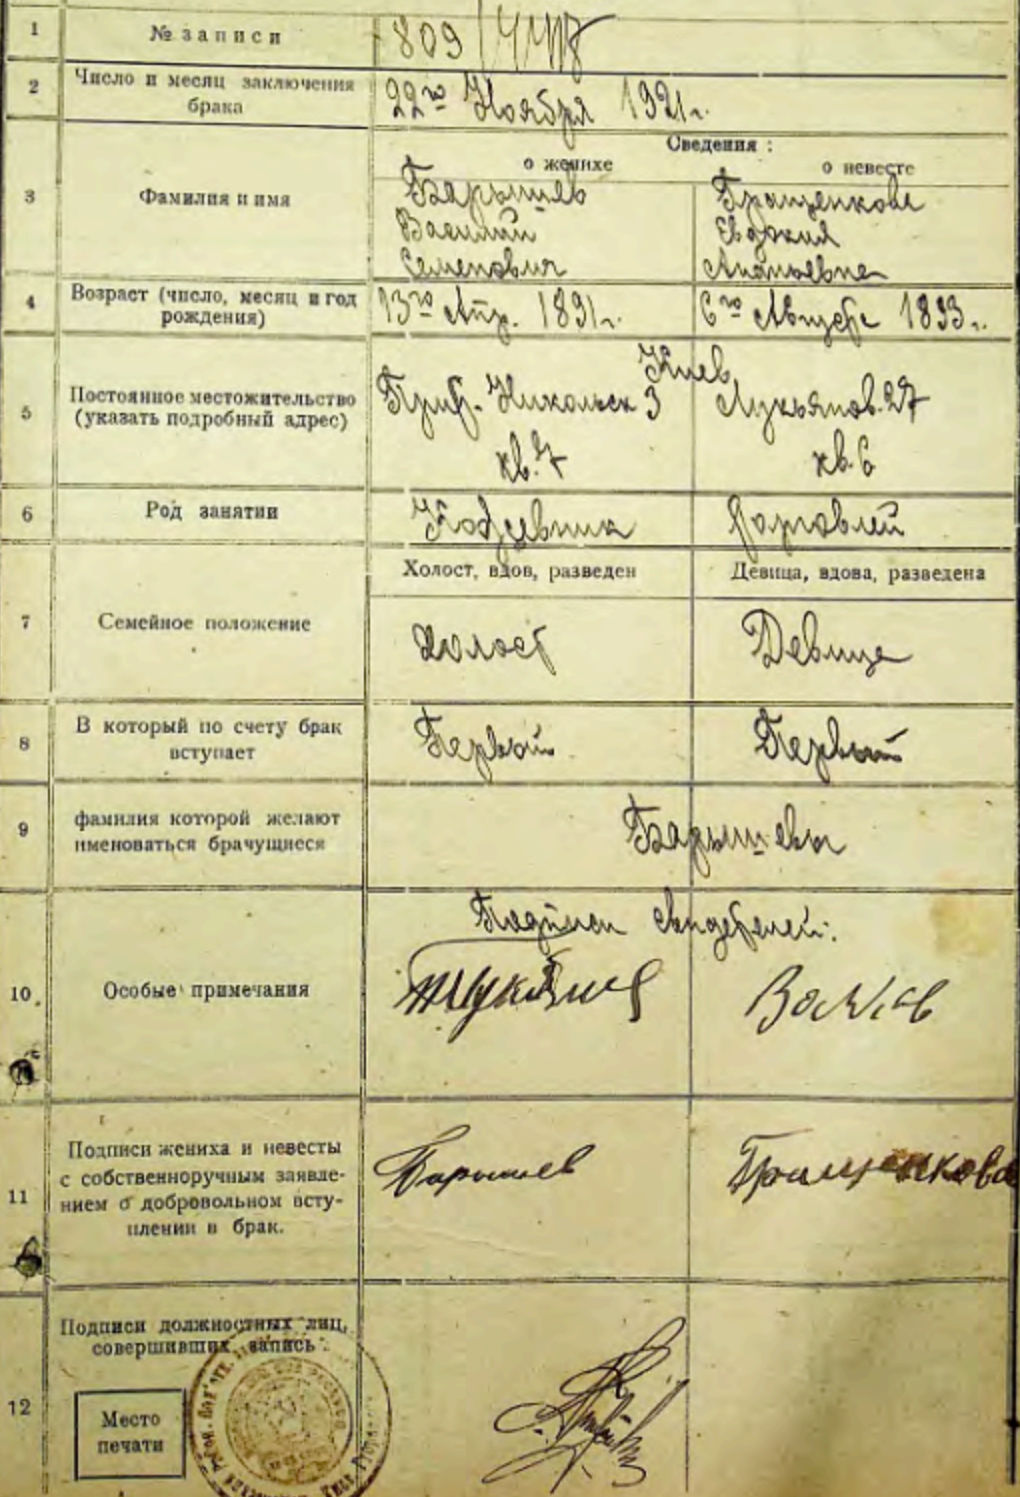 1 № записи 809
2 Число и месяц заключения
брака
22го Ноября 1921 г.
Сведения :
о женихе о невесте
3 Фамилия и имя
Барышев
Василий
Семенович
Гращенкова
Евдокия
Ананьевна
4 Возраст (число, месяц и год
рождения)
13го Апр. 1891 г. 6го Августа 1893 г.
5 Постоянное местожительство
(указать подробный адрес)
Киев
Никольск 3 Лукьянов. 27
кв. 7 кв. 6
6 Род занятии
торговлей
Холост, вдов, разведен Девица, вдова, разведена
7 Семейное положение
Холост Девица
8 В который по счету брак
вступает
Первый Первый
9 фамилия которой желают
именоваться брачущиеся
Барышевы
10. Особые примечания
Подписи свидетелей:
11 Подписи жениха и невесты
с собственноручным заявле-
нием о добровольном всту-
плении в брак.
Барышев Гращенкова
12 Подписи должностных лиц,
совершивших запись
Место
печати